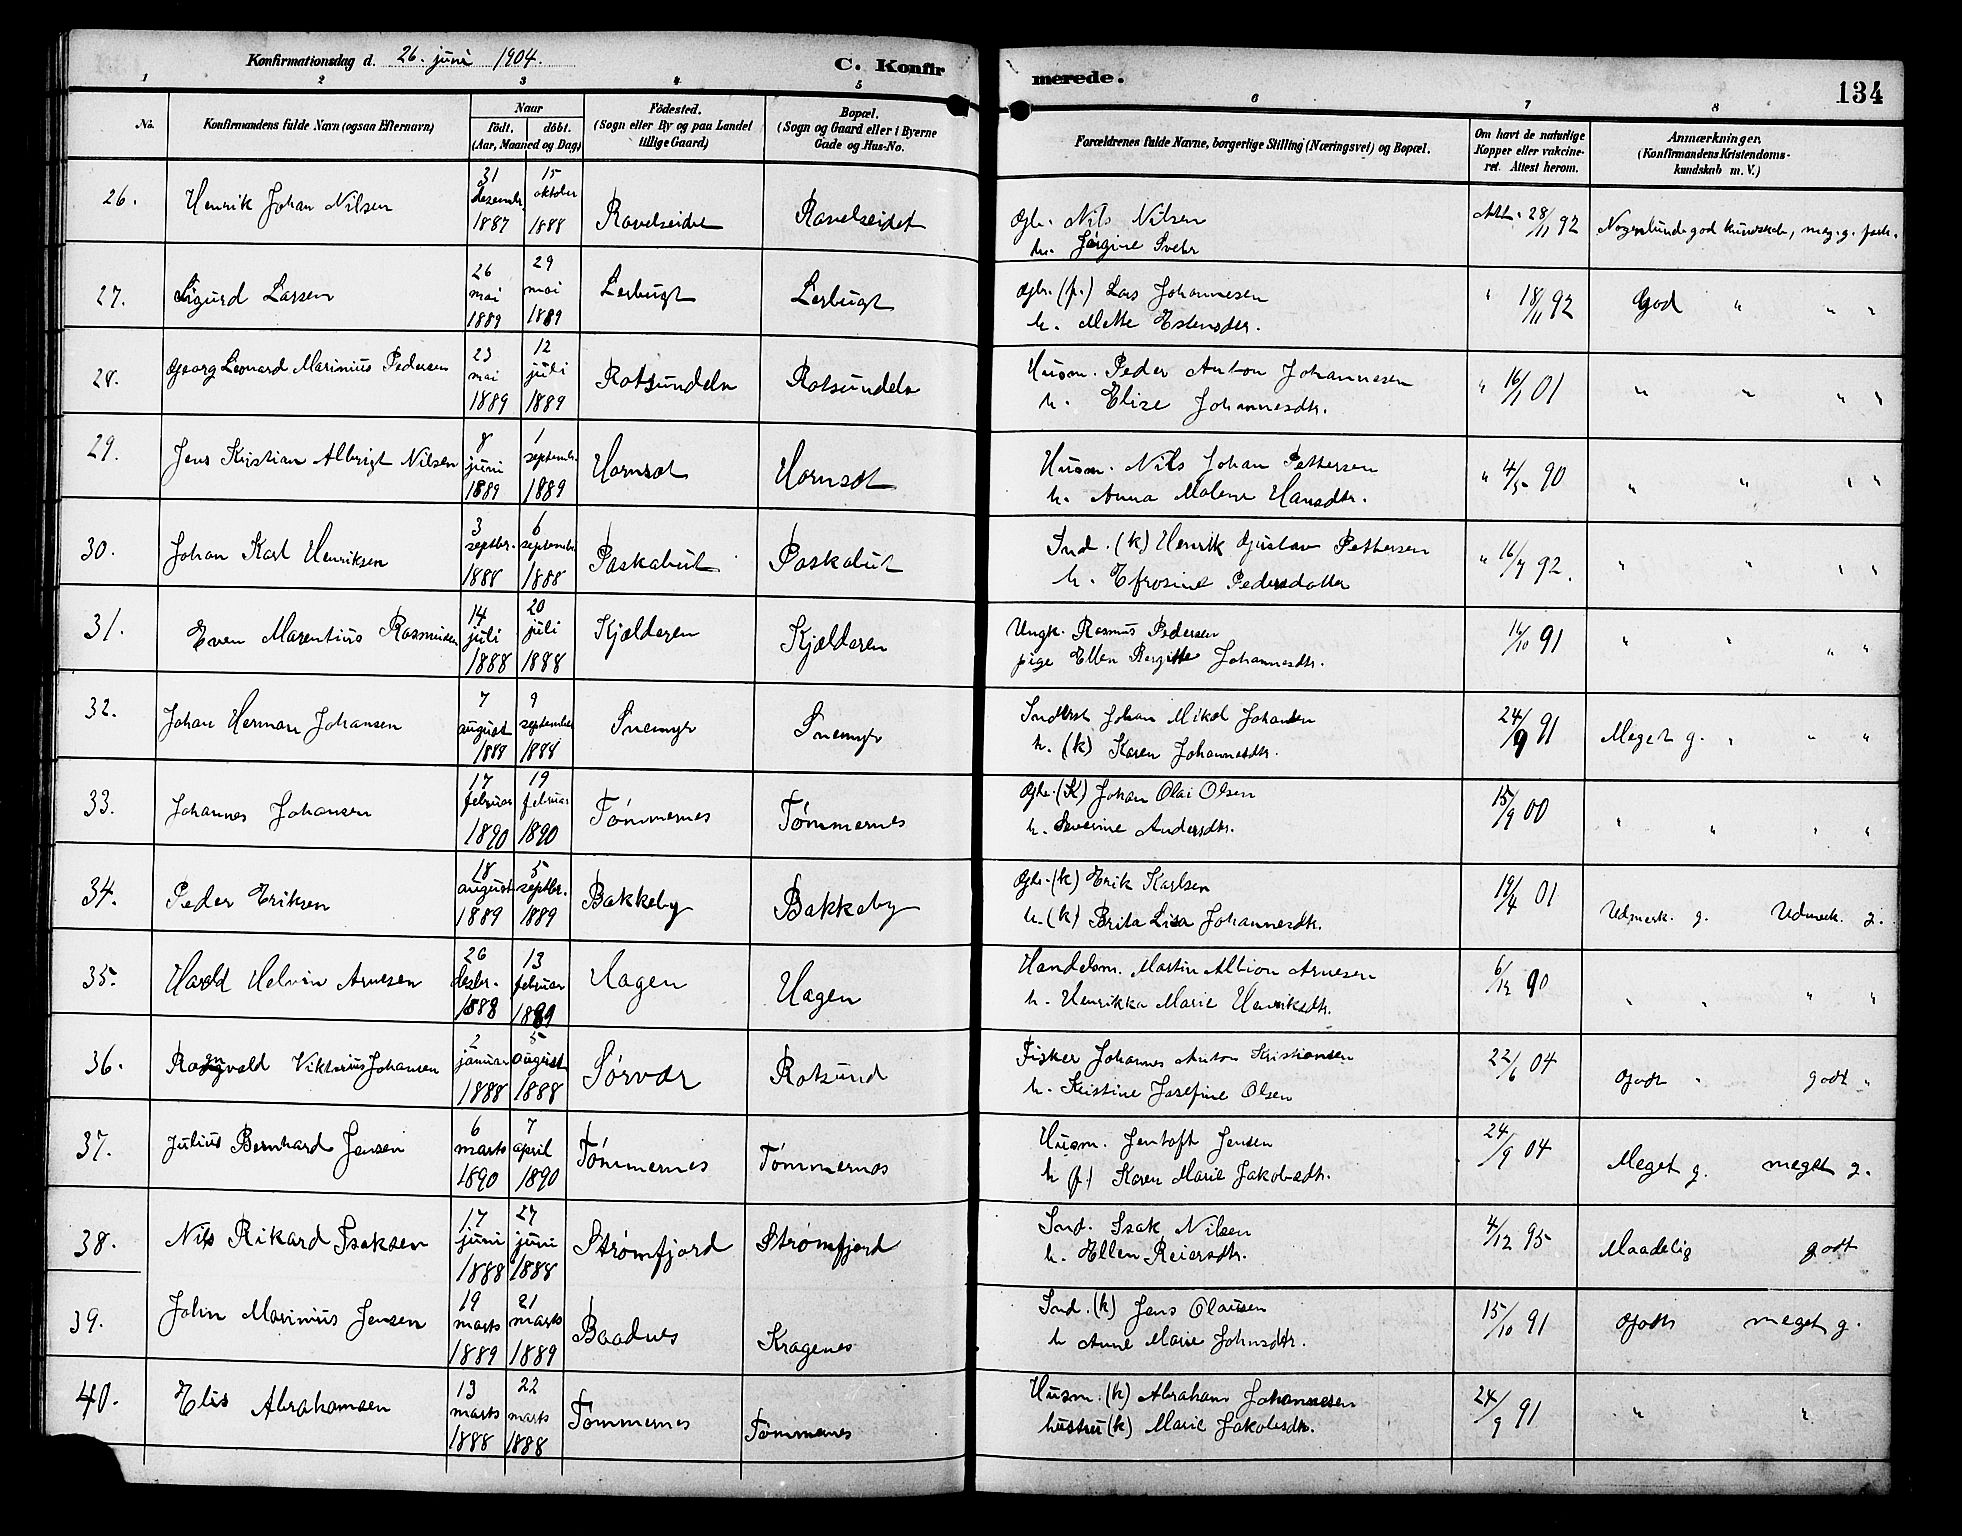 Konfirmationsdag d. 26. juni 1904.
C. Konfirmerede.
134
1 2 3 4 5 6 7 8
No.
Konfirmandens fulde Navn (ogsaa Efternavn)
Naar
født. døbt.
(Aar, Maaned og Dag)
Fødested.
(Sogn eller By og paa Landet
tillige Gaard)
Bopæl.
(Sogn og Gaard eller i Byerne
Gade og Hus-No.
Forældrenes fulde Navne, borgerlige Stilling (Næringsvei) og Bopæl.
Om havt de naturlige
Kopper eller vakcine-
ret. Attest herom.
Anmærkninger.
(Konfirmandens Kristendoms-
kundskab m. V.)
26. Henrik Johan Nilsen
31 desembr. 1887
15 oktober 1888
Ravelseidet Ravelseidet
Gbr. Nils Nilsen
hu. Jørgine
Att. 28/11 92
god kundskab, meg. g.
27. Sigurd Larsen
26 mai 1889
29 mai 1889
Lerbugt Lerbugt
Gbr. (f.) Lars Johannesen
h. Mette Estensdtr.
" 18/11 92
God " " "
28. Georg Leonard Marinius Pedersen
23 mai 1889
12 juli 1889
Rotsundelv Rotsundelv
Husm. Peder Anton Johannesen
h. Elise Johannesdtr.
" 16/1 01
" " " "
29. Jens Kristian Albrigt Nilsen
8 juni 1889
1 septembr. 1889
Hamset Hamset
Husm. Nils Johan Pettersen
h. Anna Malene Hansdtr.
" 4/5 90
" " " "
30. Johan Karl Henriksen
3 septbr. 1888
6 september 1888
Paskabut Paskabut
Ind. (k) Henrik Gustav Pettersen
h. Efrosine Pedersdatter
" 16/7 92.
" " " "
31. Even Marentius Rasmusen
14 juli 1888
20 juli 1888
Kjælderen Kjælderen
Ungk. Rasmus Pedersen
pige Ellen Bergitte Johannesdtr.
14/10 91
" " " "
32. Johan Herman Johansen
7 august 1888
9 september 1888
Snemyr Snemyr
Inderst Johan Mikal Johansen
h. (k) Karen Johannesdtr.
24/9 91
Meget g. " " "
33. Johannes Johansen
17 februar 1890
19 februar 1890
Tømmernes Tømmernes
Gbr. (K) Johan Olai Olsen
h. Severine Andersdtr.
15/9 00
" " " "
34. Peder Eriksen
18 august 1889
5 septbr. 1889
Bakkeby Bakkeby
Gbr. (k) Erik Karlsen
h. (k) Brita Lisa Johannesdtr.
19/4 01
Udmerk. g. Udmerk. g.
35. Harald Helvin Arnesen
26 desbr. 1888
13 februar 1889
Hagen Hagen
Handelsm. Martin Albion Arnesen
h. Henrikka Marie Henriksdtr.
6/12 90
" " " "
36. Ragnvald Viktorius Johansen
2 januar 1888
5 august 1888
Sørvær Rotsund
Fisker Johannes Anton Kristiansen
h. Kristine Josefine Olsen
22/6 04
Godt " godt "
37. Julius Bernhard Jensen
6 marts 1890
7 april 1890
Tømmernes Tømmernes
Husm. Jentoft Jensen
h (f.) Karen Marie Jakobsdtr.
24/9 04
Meget g. meget g.
38. Nils Rikard Isaksen
17 juni 1888
27 juni 1888
Strømfjord Strømfjord
Ind. Isak Nilsen
h. Ellen Reiersdtr.
4/12 95
Maadelig godt
39. John Marinius Jensen
19 marts 1889
21 marts 1889
Baadnes Kragenes
Ind. (k) Jens Olausen
h Anne Marie Johnsdtr.
15/10 91
Godt meget g.
40. Elis Abrahamsen
13 marts 1888
22 marts 1888
Tømmernes Tømmernes
Husm. (k) Abraham Johannesen
hustru (k) Marie Jakobsdtr.
24/9 91
" "